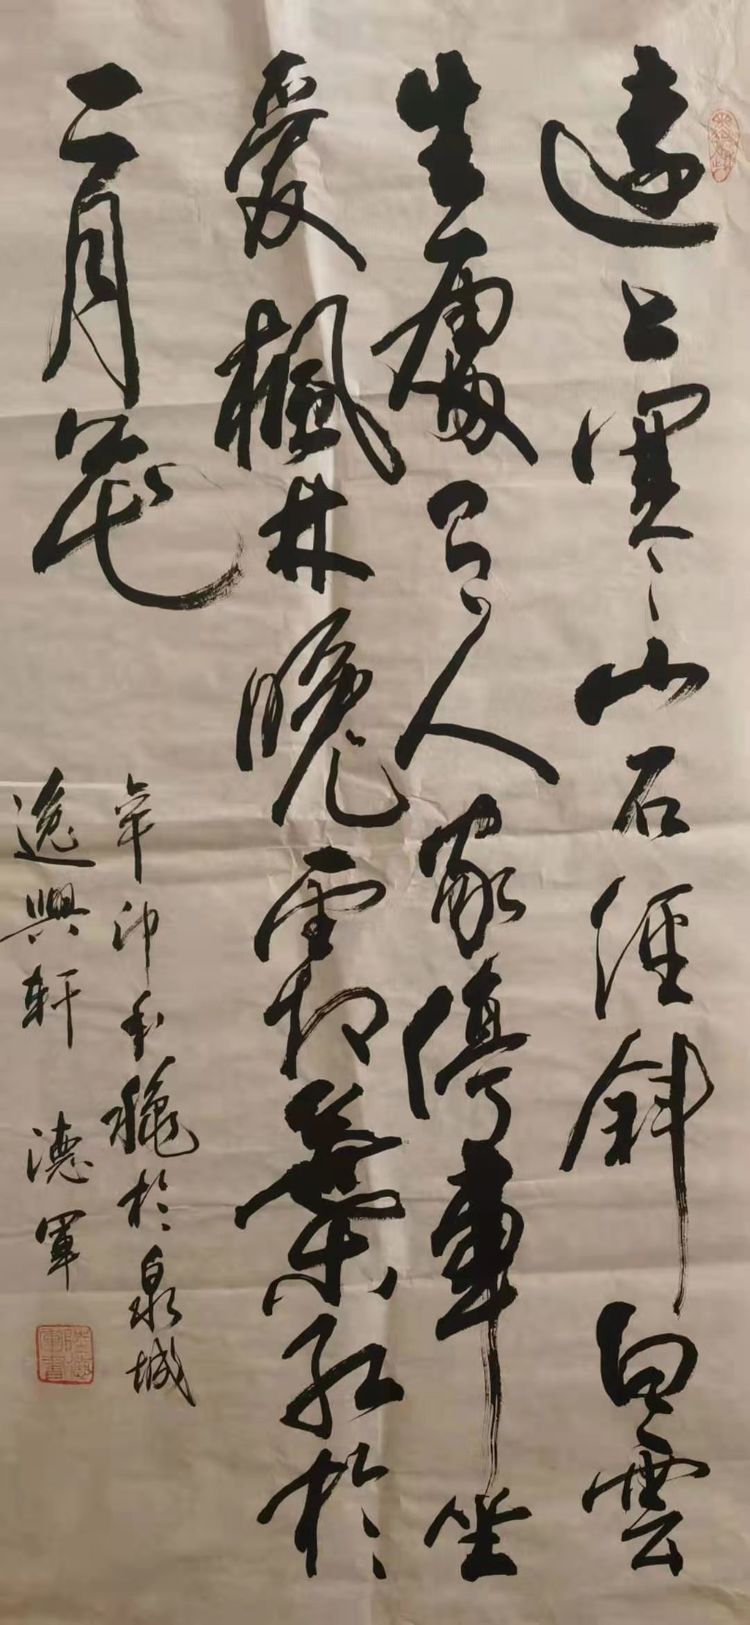 遠上寒山石徑斜白雲
生處有人家停車坐
愛楓林晚霜葉紅於
二月花
辛卯 龝於泉城
逸興軒 德軍